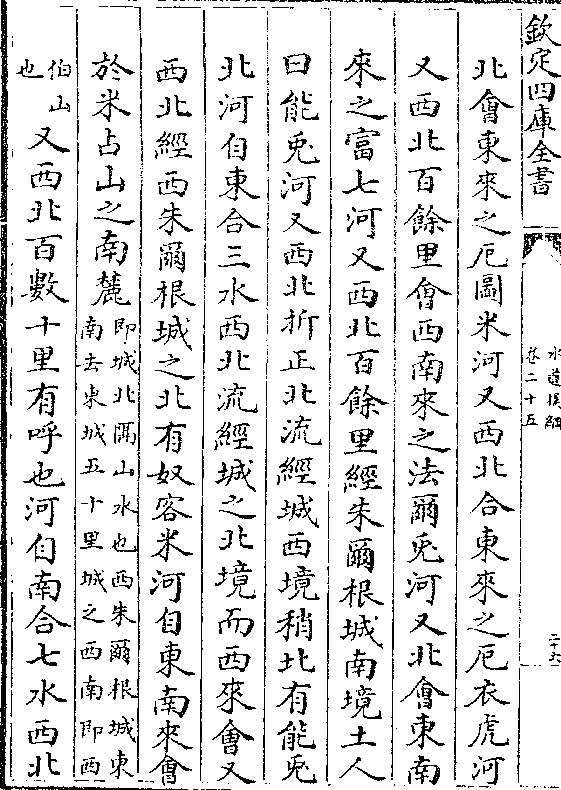 欽定四庫全書
水道提綱
卷二十五
二十六
北會東來之厄圖米河又西北合東來之厄衣虎河
又西北百餘里會西南來之法爾兎河又北會東南
來之富七河又西北百餘里經朱爾根城南境土人
曰能兎河又西北折正北流經城西境稍北有能兎
北河自東合三水西北流經城之北境而西來會又
西北經西朱爾根城之北有奴客米河自東南來會
於米占山之南麓即城北隅山水也西朱爾根城東
南去東城五十里城之西南即西
伯山
也又西北百數十里有呼也河自南合七水西北